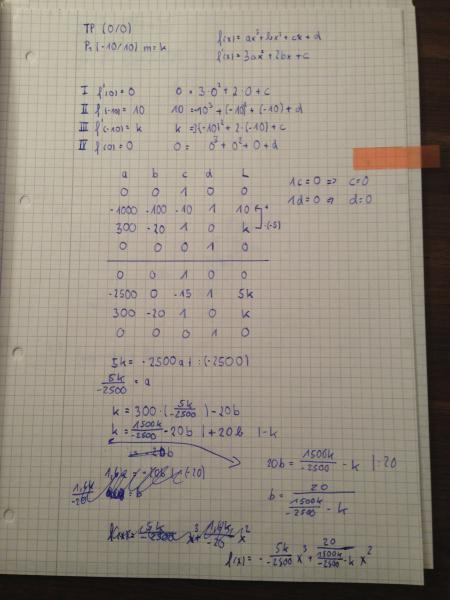 TP (0/0)
P₁ (-10/10) m=k
f(x) = ax³+bx²+cx+d
f'(x) = 3ax²+2bx+c
I f'(0)=0 0 = 3·0²+2·0+c
II f(-10)=10 10=-10³+(-10)²+(-10)+d
III f'(-10)=k k=3(-10)²+2·(-10)+c
IV f(0)=0 0= 0³+0²+0+d
a b c d L
0 0 1 0 0
-1000 -100 -10 1 10
300 -20 1 0 k ·(-5)
0 0 0 1 0
1c=0 => c=0
1d=0 => d=0
0 0 1 0 0
-2500 0 -15 1 5k
300 -20 1 0 k
0 0 0 1 0
5k = -2500a | :(-2500)
5k/-2500 = a
k = 300·(5k/-2500)-20b
k = 1500k/-2500 -20b |+20b |-k
20b = 1500k/-2500 - k |-20
b = 20/(1500k/-2500 - k)
f(x) = - 5k/-2500 x³ + 20/(1500k/-2500 - k) x²